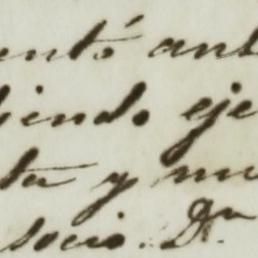 entó ant
iendo eje
ta y mu
socio. Dn